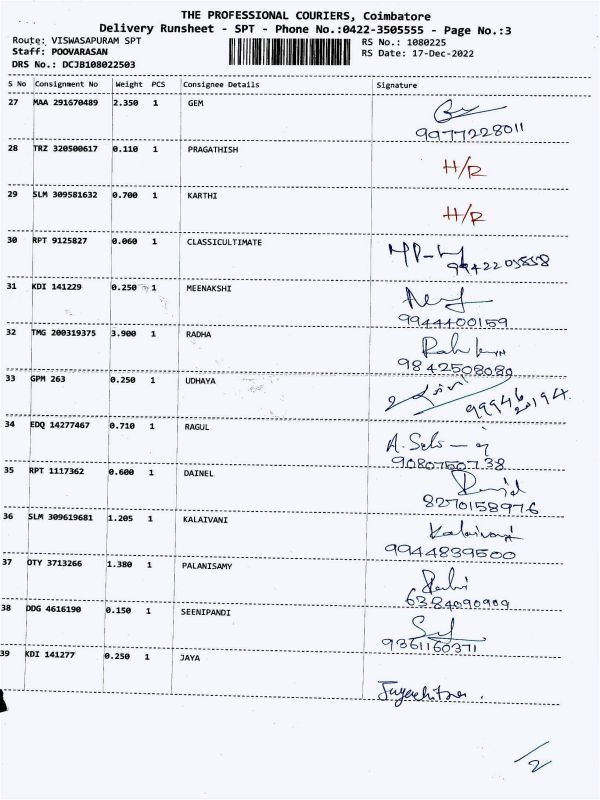 THE PROFESSIONAL COURIERS, Coimbatore
Delivery Runsheet - SPT - Phone No.:0422-3505555 - Page No.:3
Route: VISWASAPURAM SPT
RS No.: 1080225
Staff: POOVARASAN
RS Date: 17-Dec-2022
DRS No.: DCJB108022503
S No Consignment No Weight PCS Consignee Details Signature
27 MAA 291670489 2.350 1 GEM
9977228011
28 TRZ 320500617 0.110 1 PRAGATHISH H/R
29 SLM 309581632 0.700 1 KARTHI H/R
30 RPT 9125827 0.060 1 CLASSICULTIMATE
9942205858
31 KDI 141229 0.250 1 MEENAKSHI
9944400159
32 TMG 200319375 3.900 1 RADHA
9842508080
33 GPM 263 0.250 1 UDHAYA
34 EDQ 14277467 0.710 1 RAGUL
35 RPT 1117362 0.600 1 DAINEL
8270158976
36 SLM 309619681 1.205 1 KALAIVANI Kalaivani
9944839500
37 OTY 3713266 1.380 1 PALANISAMY
6384090909
38 DDG 4616190 0.150 1 SEENIPANDI
9361160371
39 KDI 141277 0.250 1 JAYA
2